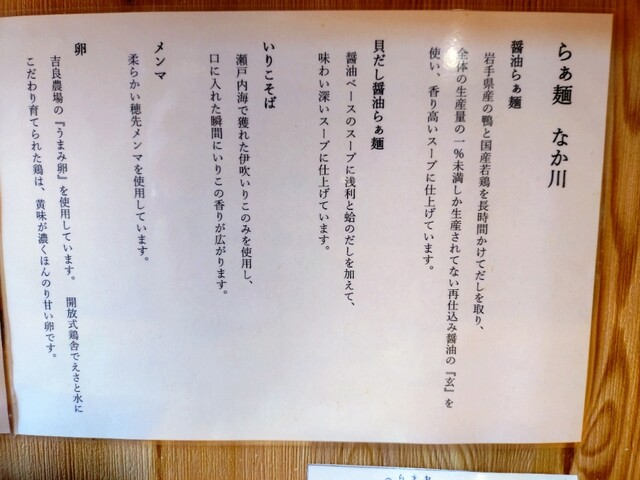 らぁ麺　なか川
醤油らぁ麺
岩手県産の鴨と国産若鶏を長時間かけてだしを取り、
全体の生産量の一％未満しか生産されてない再仕込み醤油の『玄』を
使い、香り高いスープに仕上げています。
貝だし醤油らぁ麺
醤油ベースのスープに浅利と蛤のだしを加えて、
味わい深いスープに仕上げています。
いりこそば
瀬戸内海で獲れた伊吹いりこのみを使用し、
口に入れた瞬間にいりこの香りが広がります。
メンマ
柔らかい穂先メンマを使用しています。
卵
吉良農場の『うまみ卵』を使用しています。　開放式鶏舎でえさと水に
こだわり育てられた鶏は、黄味が濃くほんのり甘い卵です。